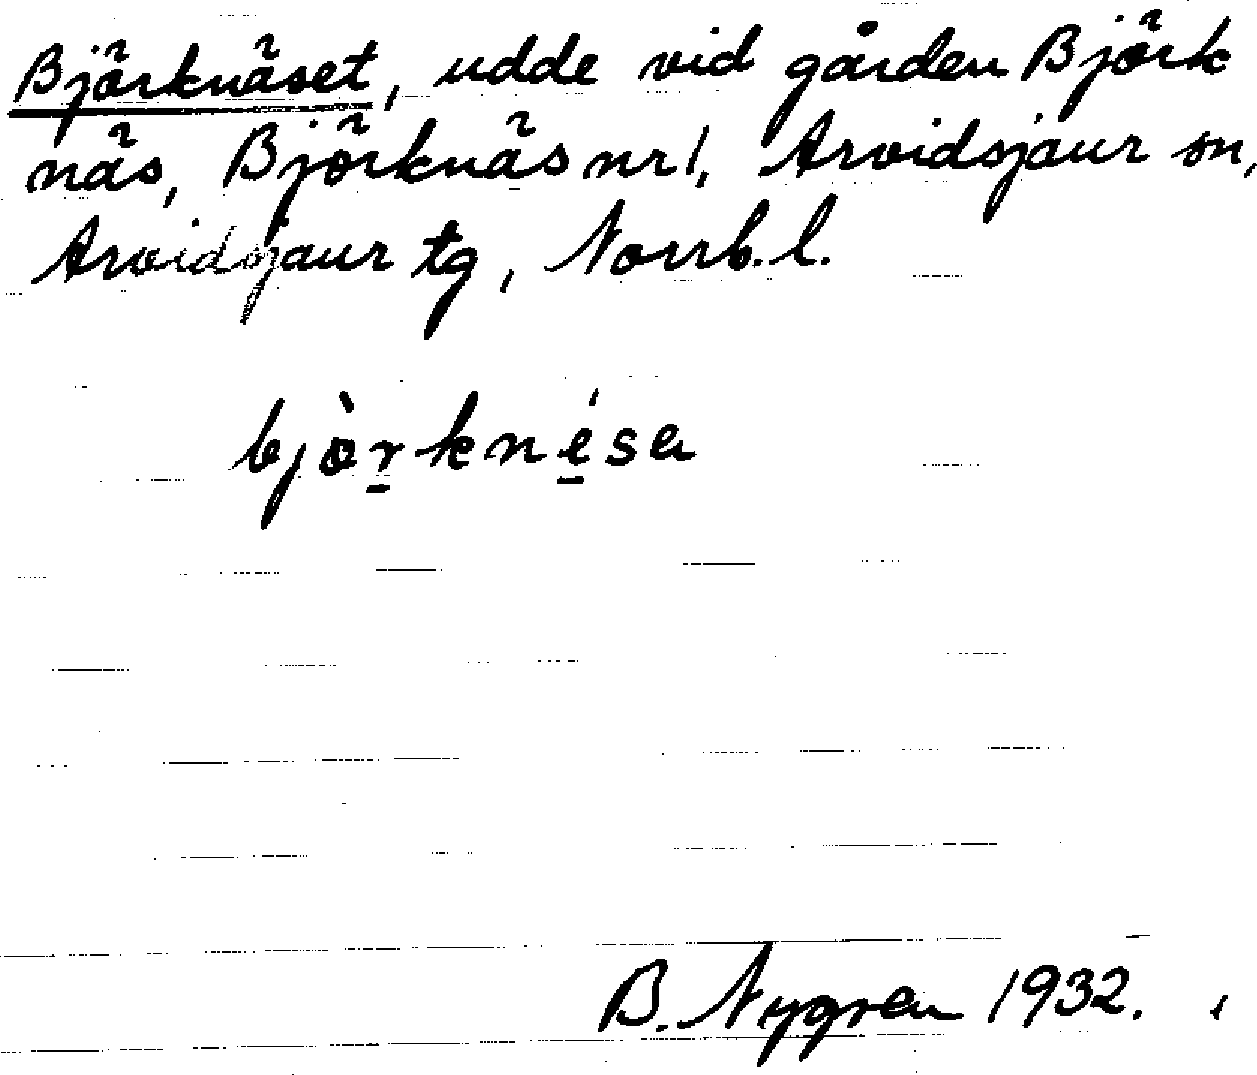 Björknäset, udde vid gården Björk
näs, Björknäs nr 1, Arvidsjaur sn,
Arvidsjaur tg, Norrb. l.
bjòr̠kné̠sa
B. Nygren 1932.